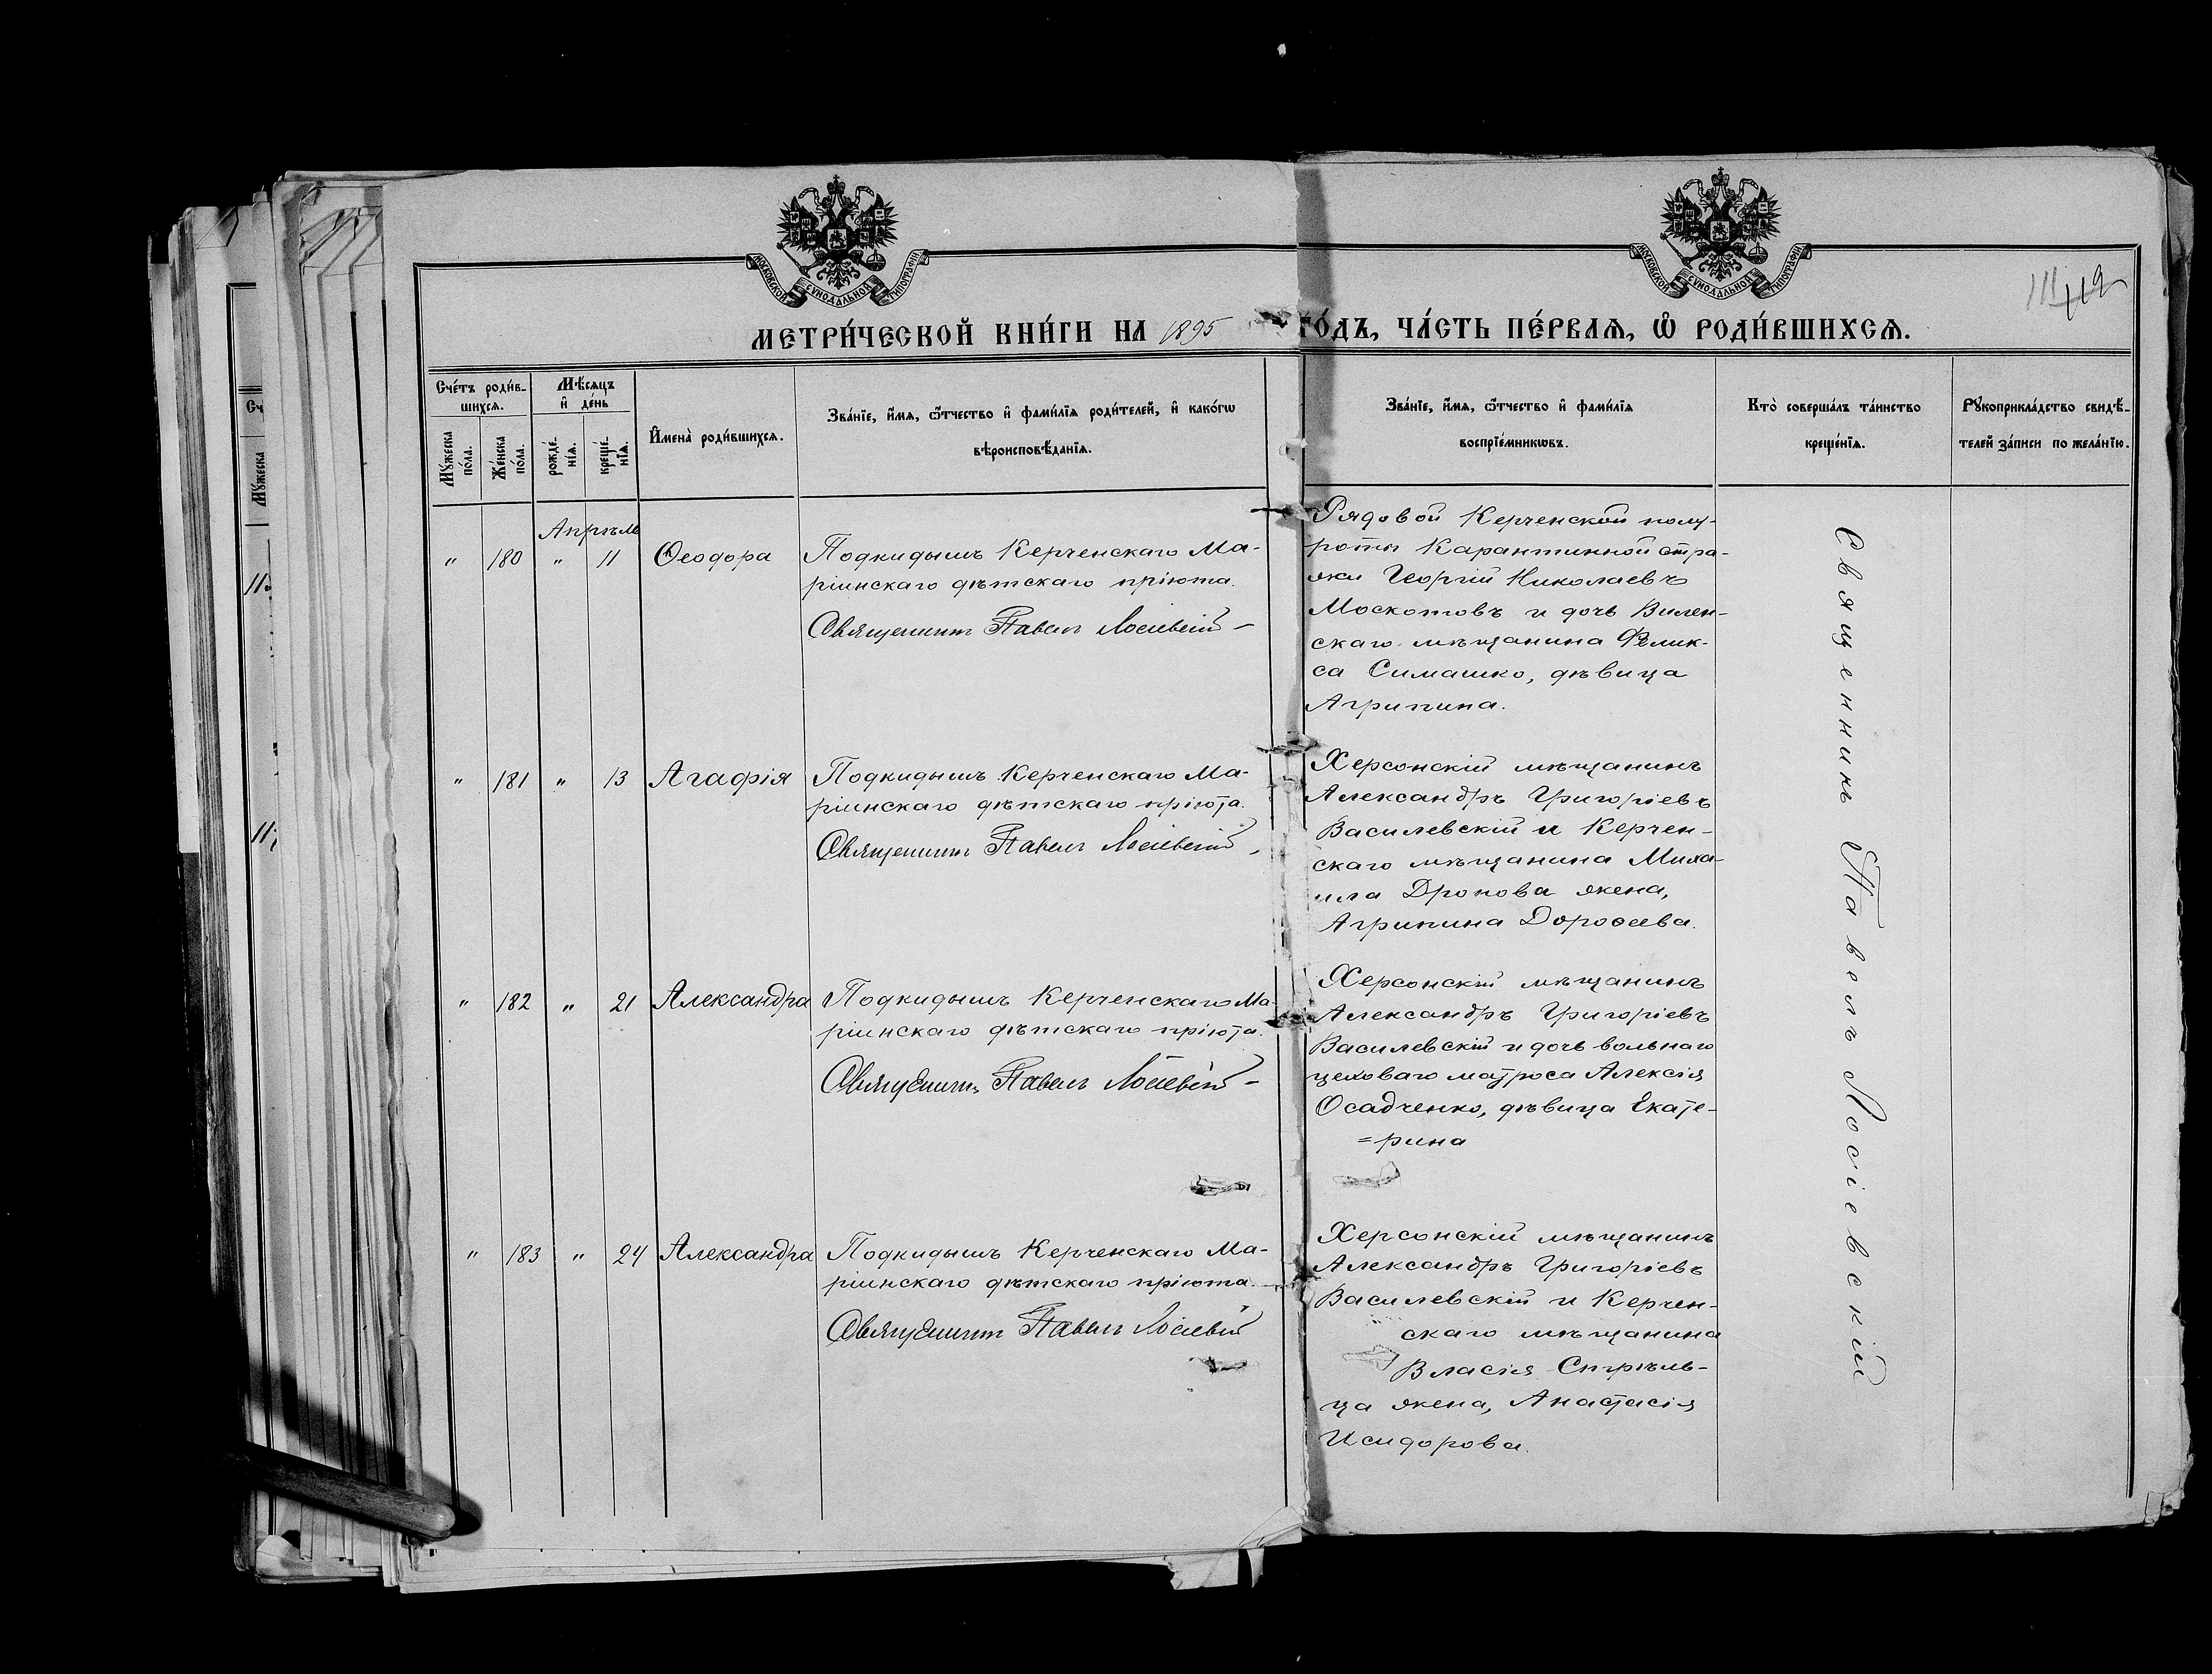 МОСКОВСКОЙ СѴНОДАЛЬНОЙ ТИПОГРАФІИ
МОСКОВСКОЙ СѴНОДАЛЬНОЙ ТИПОГРАФІИ
111 112
МЕТРИ́ЧЕСКОЙ КНИ́ГИ НА 1895 ГО́ДЪ, ЧА́СТЬ ПЕ́РВАѦ, Ѽ РОДИ́ВШИХСѦ.
Сче́тъ роди́в-
шихсѧ.
Мꙋ́жеска
по́ла.
Же́нска
по́ла.
Мѣ́сѧцъ
и҆ де́нь
рожде́-
нїѧ.
креще́-
нїѧ.
И҆мена̀ роди́вшихсѧ.
Зва́нїе, и҆́мѧ, ѻ҆́тчество и҆ фамі́лїѧ роди́телей, и҆ како́гѡ
вѣроисповѣ́данїѧ.
Зва́нїе, и҆́мѧ, ѻ҆́тчество и҆ фамі́лїѧ
воспрїе́мникѡвъ.
Кто̀ соверша́лъ та́инство
креще́нїѧ.
Рꙋкоприкла́дство свидѣ́-
телей за́писи по жела́нїю.
Апрѣль
" 180 " 11 Ѳеодора
Подкидышъ Керченскаго Ма-
ріинскаго дѣтскаго пріюта.
Священникъ Павелъ Лосіевскій
Рядовой Керченской полу-
роты Карантинной стра-
жи Георгій Николаевъ
Москотовъ и дочь Вилен-
скаго мѣщанина Фелик-
са Симашко, дѣвица
Агрипина.
" 181 " 13 Агафія
Подкидышъ Керченскаго Ма-
ріинскаго дѣтскаго пріюта.
Священникъ Павелъ Лосіевскій
Херсонскій мѣщанинъ
Александръ Григоріевъ
Василевскій и Керчен-
скаго мѣщанина Миха-
ила Дронова жена,
Агрипина Дороѳеева.
" 182 " 21 Александра
Подкидышъ Керченскаго Ма-
ріинскаго дѣтскаго пріюта.
Священникъ Павелъ Лосіевскій
Херсонскій мѣщанинъ
Александръ Григоріевъ
Василевскій и дочь вольнаго
цеховаго матроса Алексія
Осадченко, дѣвица Екате-
=рина
" 183 " 24 Александра
Подкидышъ Керченскаго Ма-
ріинскаго дѣтскаго пріюта.
Священникъ Павелъ Лосіевскій
Херсонскій мѣщанинъ
Александръ Григоріевъ
Василевскій и Керчен-
скаго мѣщанина
Власія Стрѣль-
ца жена, Анастасія
Исидорова.
Священникъ Павелъ Лосіевскій